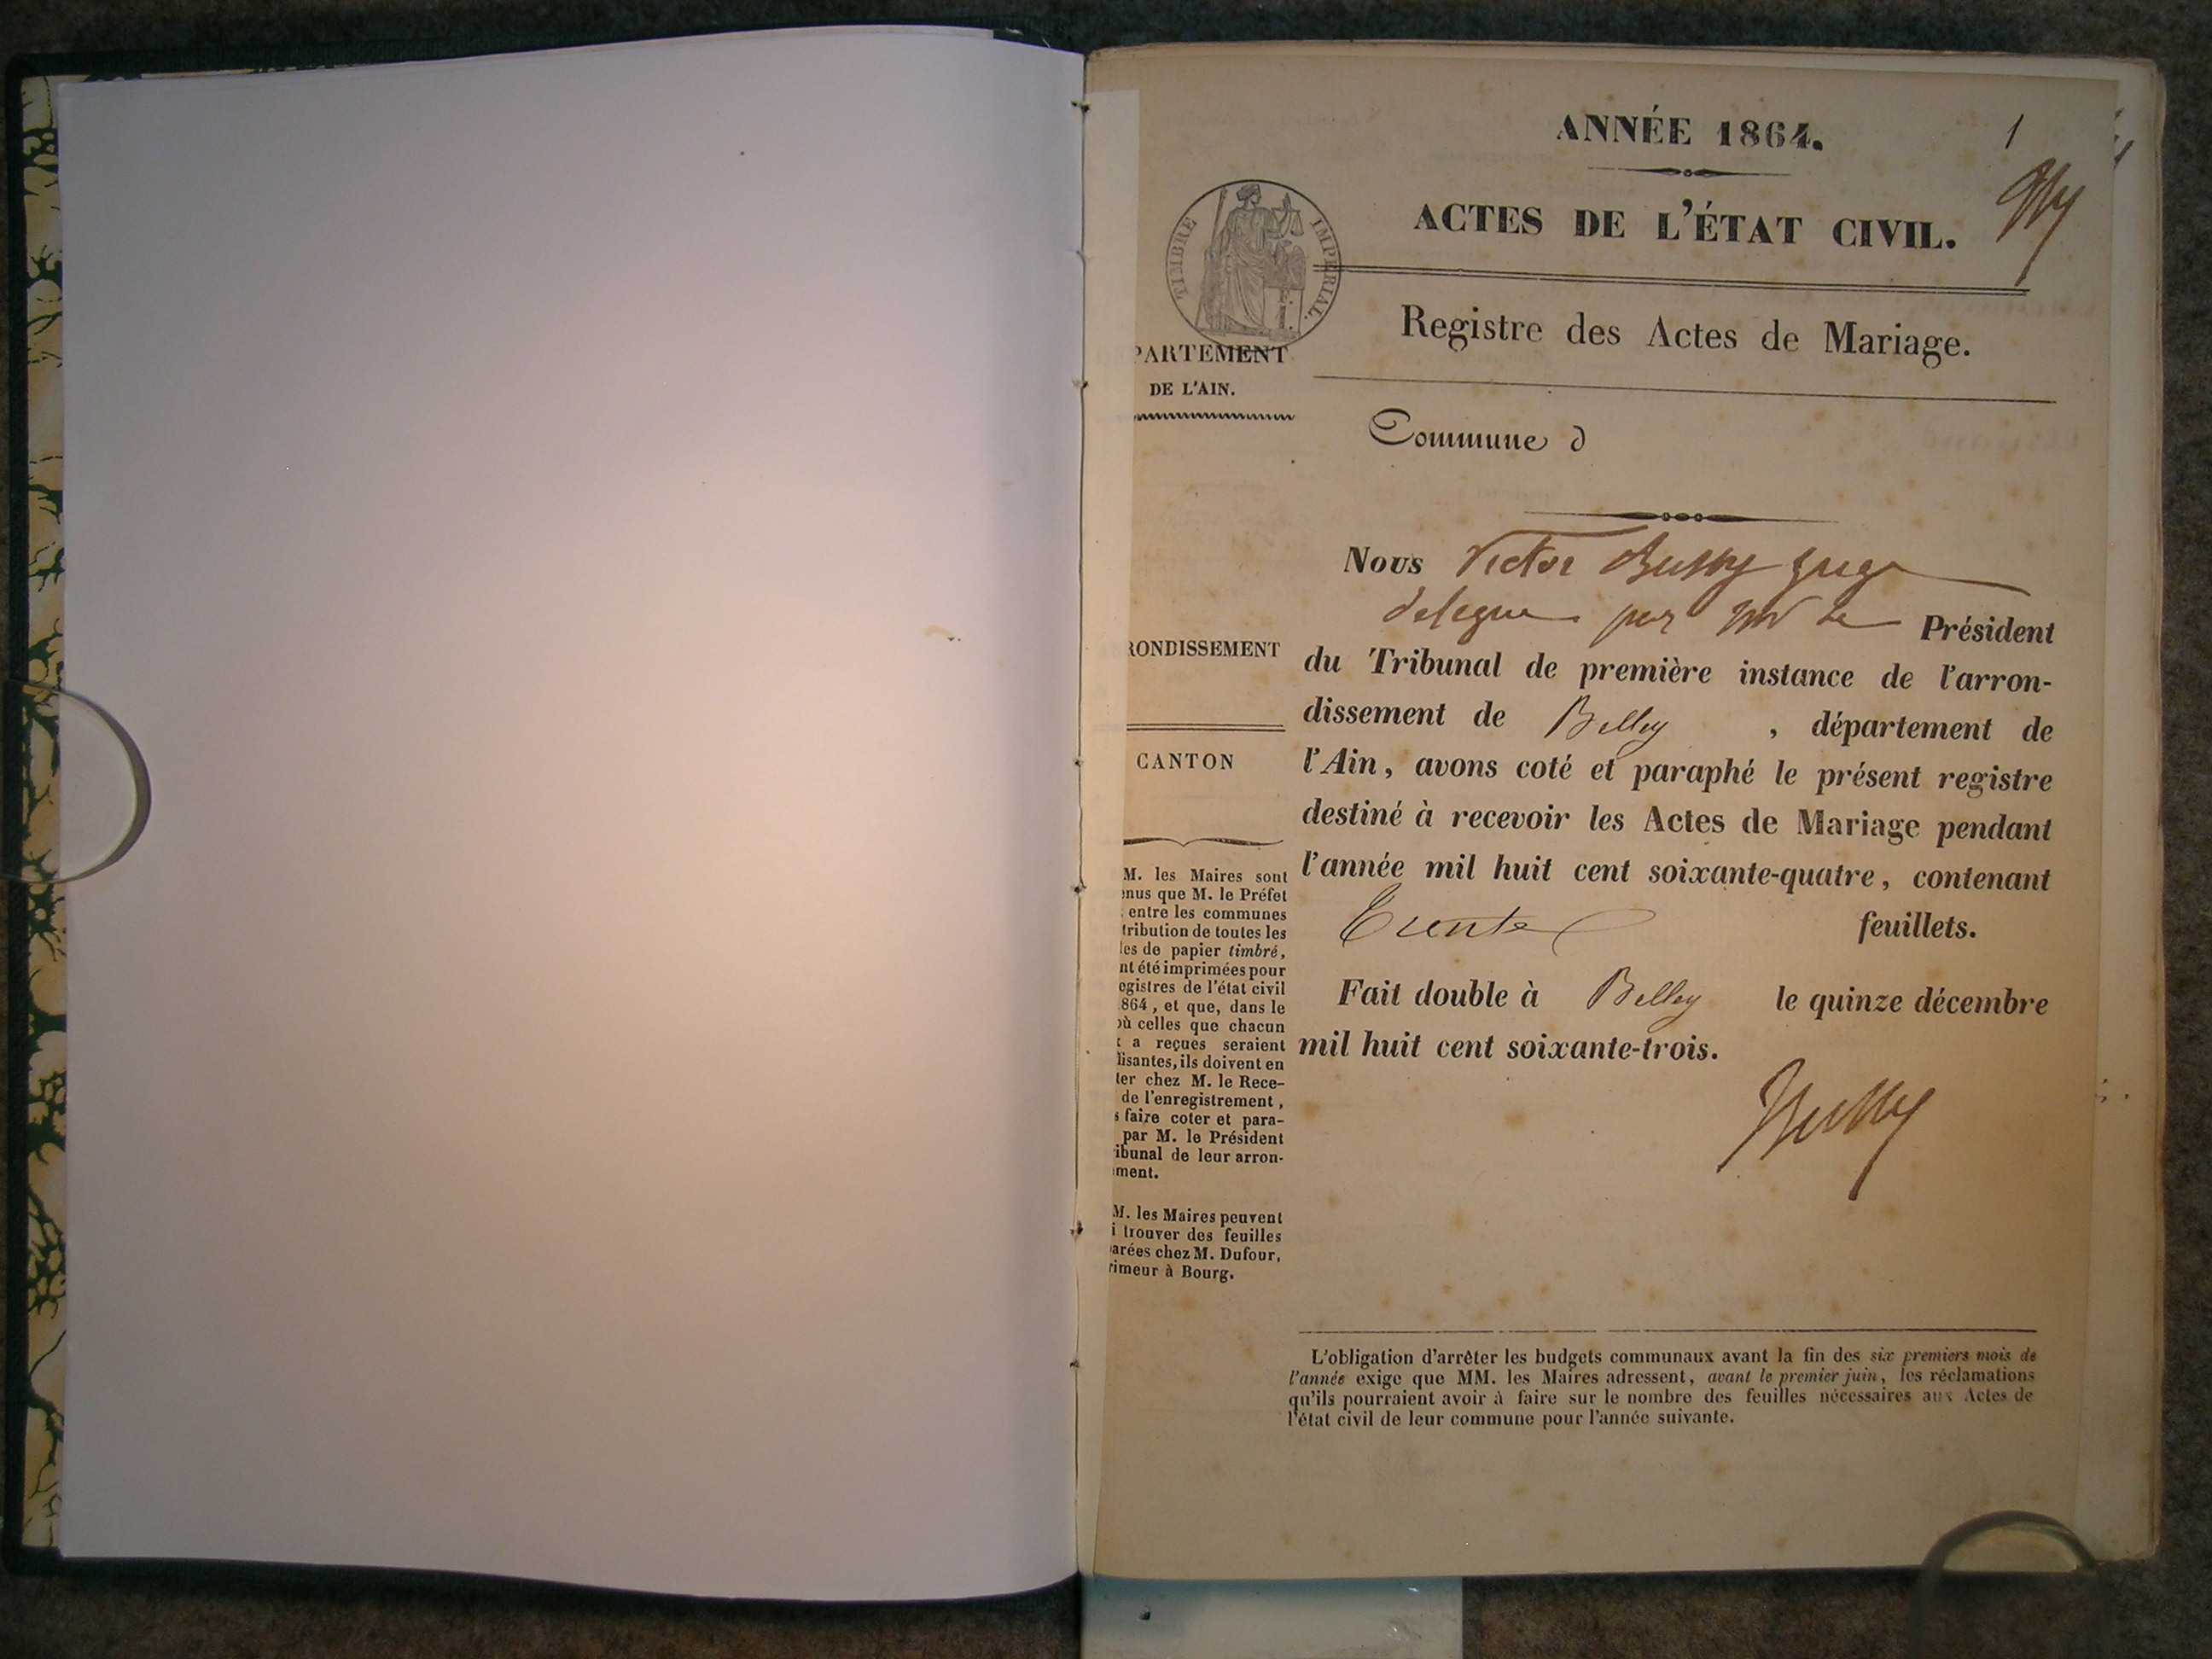 ANNÉE 1864.
1
ACTES DE L'ÉTAT CIVIL.
TIMBRE IMPERIAL.
Registre des Actes de Mariage.
PARTEMENT
DE L'AIN.
Commune d
Nous Victor Bussy juge
délégué par Mr le Président
du Tribunal de première instance de l'arron-
dissement de Belley, département de
l'Ain, avons coté et paraphé le présent registre
destiné à recevoir les Actes de Mariage pendant
l'année mil huit cent soixante-quatre, contenant
Trente feuillets.
Fait double à Belley le quinze décembre
mil huit cent soixante-trois.
Bussy
RONDISSEMENT
CANTON
M. les Maires sont
enus que M. le Préfet
entre les communes
tribution de toutes les
les de papier timbré,
nt été imprimées pour
egistres de l'état civil
864, et que, dans le
où celles que chacun
x a reçues seraient
fisantes, ils doivent en
ter chez M. le Rece-
de l'enregistrement,
s faire coter et para-
par M. le Président
ribunal de leur arron-
ment.
M. les Maires peuvent
i trouver des feuilles
arées chez M. Dufour,
rimeur à Bourg.
L'obligation d'arrêter les budgets communaux avant la fin des six premiers mois de
l'année exige que MM. les Maires adressent, avant le premier juin, les réclamations
qu'ils pourraient avoir à faire sur le nombre des feuilles nécessaires aux Actes de
l'état civil de leur commune pour l'année suivante.